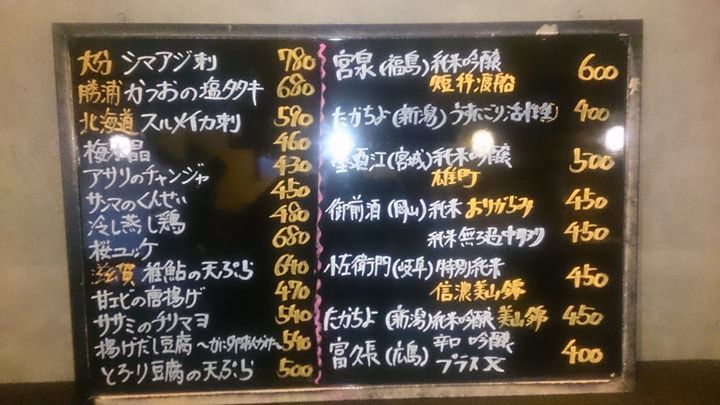 大分 シマアジ刺 780
勝浦 かつおの塩タタキ 680
北海道 スルメイカ刺 590
梅水晶 460
アサリのチャンジャ 430
サンマのくんせい 450
冷し蒸し鶏 480
桜ユッケ 680
滋賀 稚鮎の天ぷら 640
甘エビの唐揚げ 470
ササミのチリマヨ 540
揚げだし豆腐 540
とろり豆腐の天ぷら 500
宮泉(福島)純米吟醸 600
短稈渡船
たかちよ(新潟)うすにごり活性生 400
墨廼江(宮城)純米吟醸 500
雄町
御前酒(岡山)純米 おりがらみ 450
純米無ろ過中取り 450
小左衛門(岐阜)特別純米 450
信濃美山錦
たかちよ(新潟)純米吟醸 美山錦 450
富久長(広島)辛口 吟醸 400
プラスX